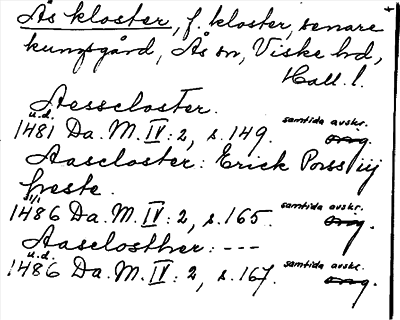 Ås kloster, f. kloster, senare
kungsgård, Ås sn, Viske hd,
Hall. l.
Aesscloster.
u.d. samtida avskr.
1481 Da. M. IV: 2, s. 149. orig.
Aascloster: Erick Porss iij
heste.
1/1 samtida avskr.
1486 Da. M. IV: 2, s. 165. orig.
Aasclosther: ---
u.d. samtida avskr.
1486 Da. M. IV: 2, s. 167. orig.